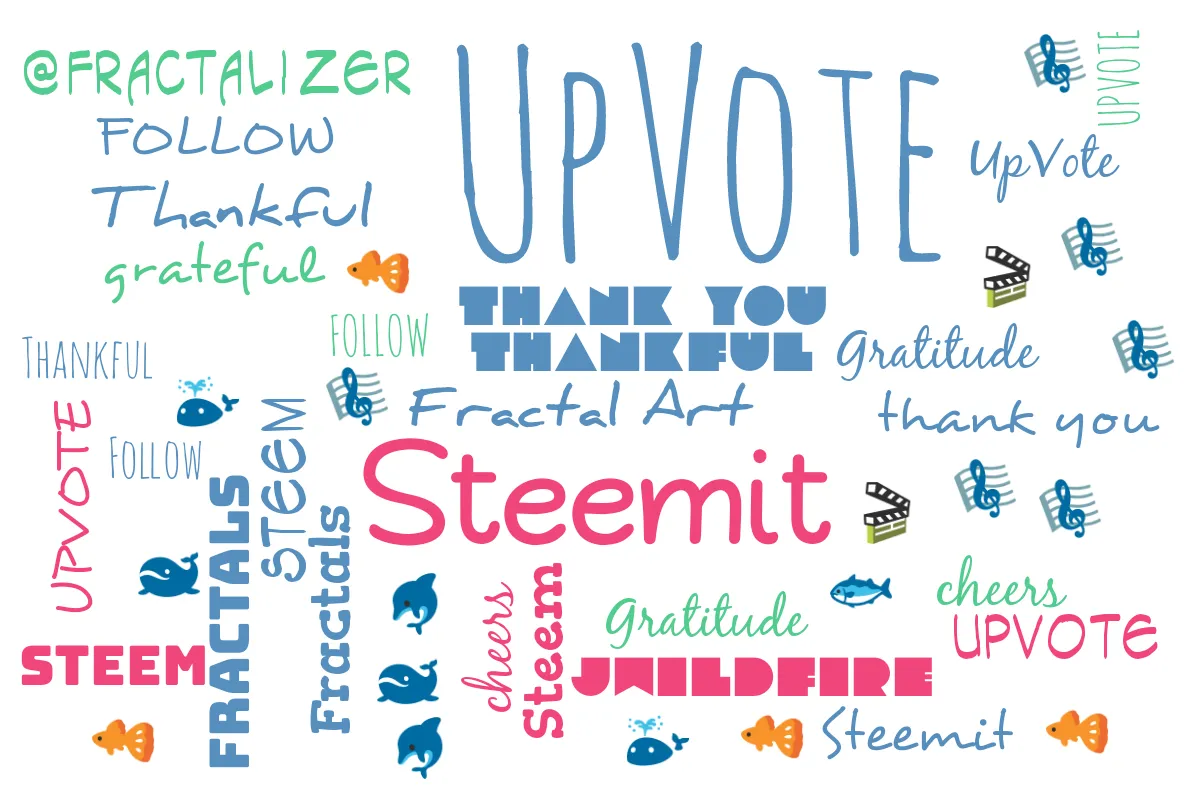 @FRACTALIZER
FOLLOW
Thankful
grateful
UpVote
UPVOTE
UpVote
THANK YOU
THANKFUL
FOLLOW
THANKFUL
Gratitude
Fractal Art
thank you
UPVOTE
FOLLOW
STEEM
FRACTALS
Fractals
Steemit
cheers
Steem
Gratitude
cheers
UPVOTE
STEEM
JWILDFIRE
Steemit